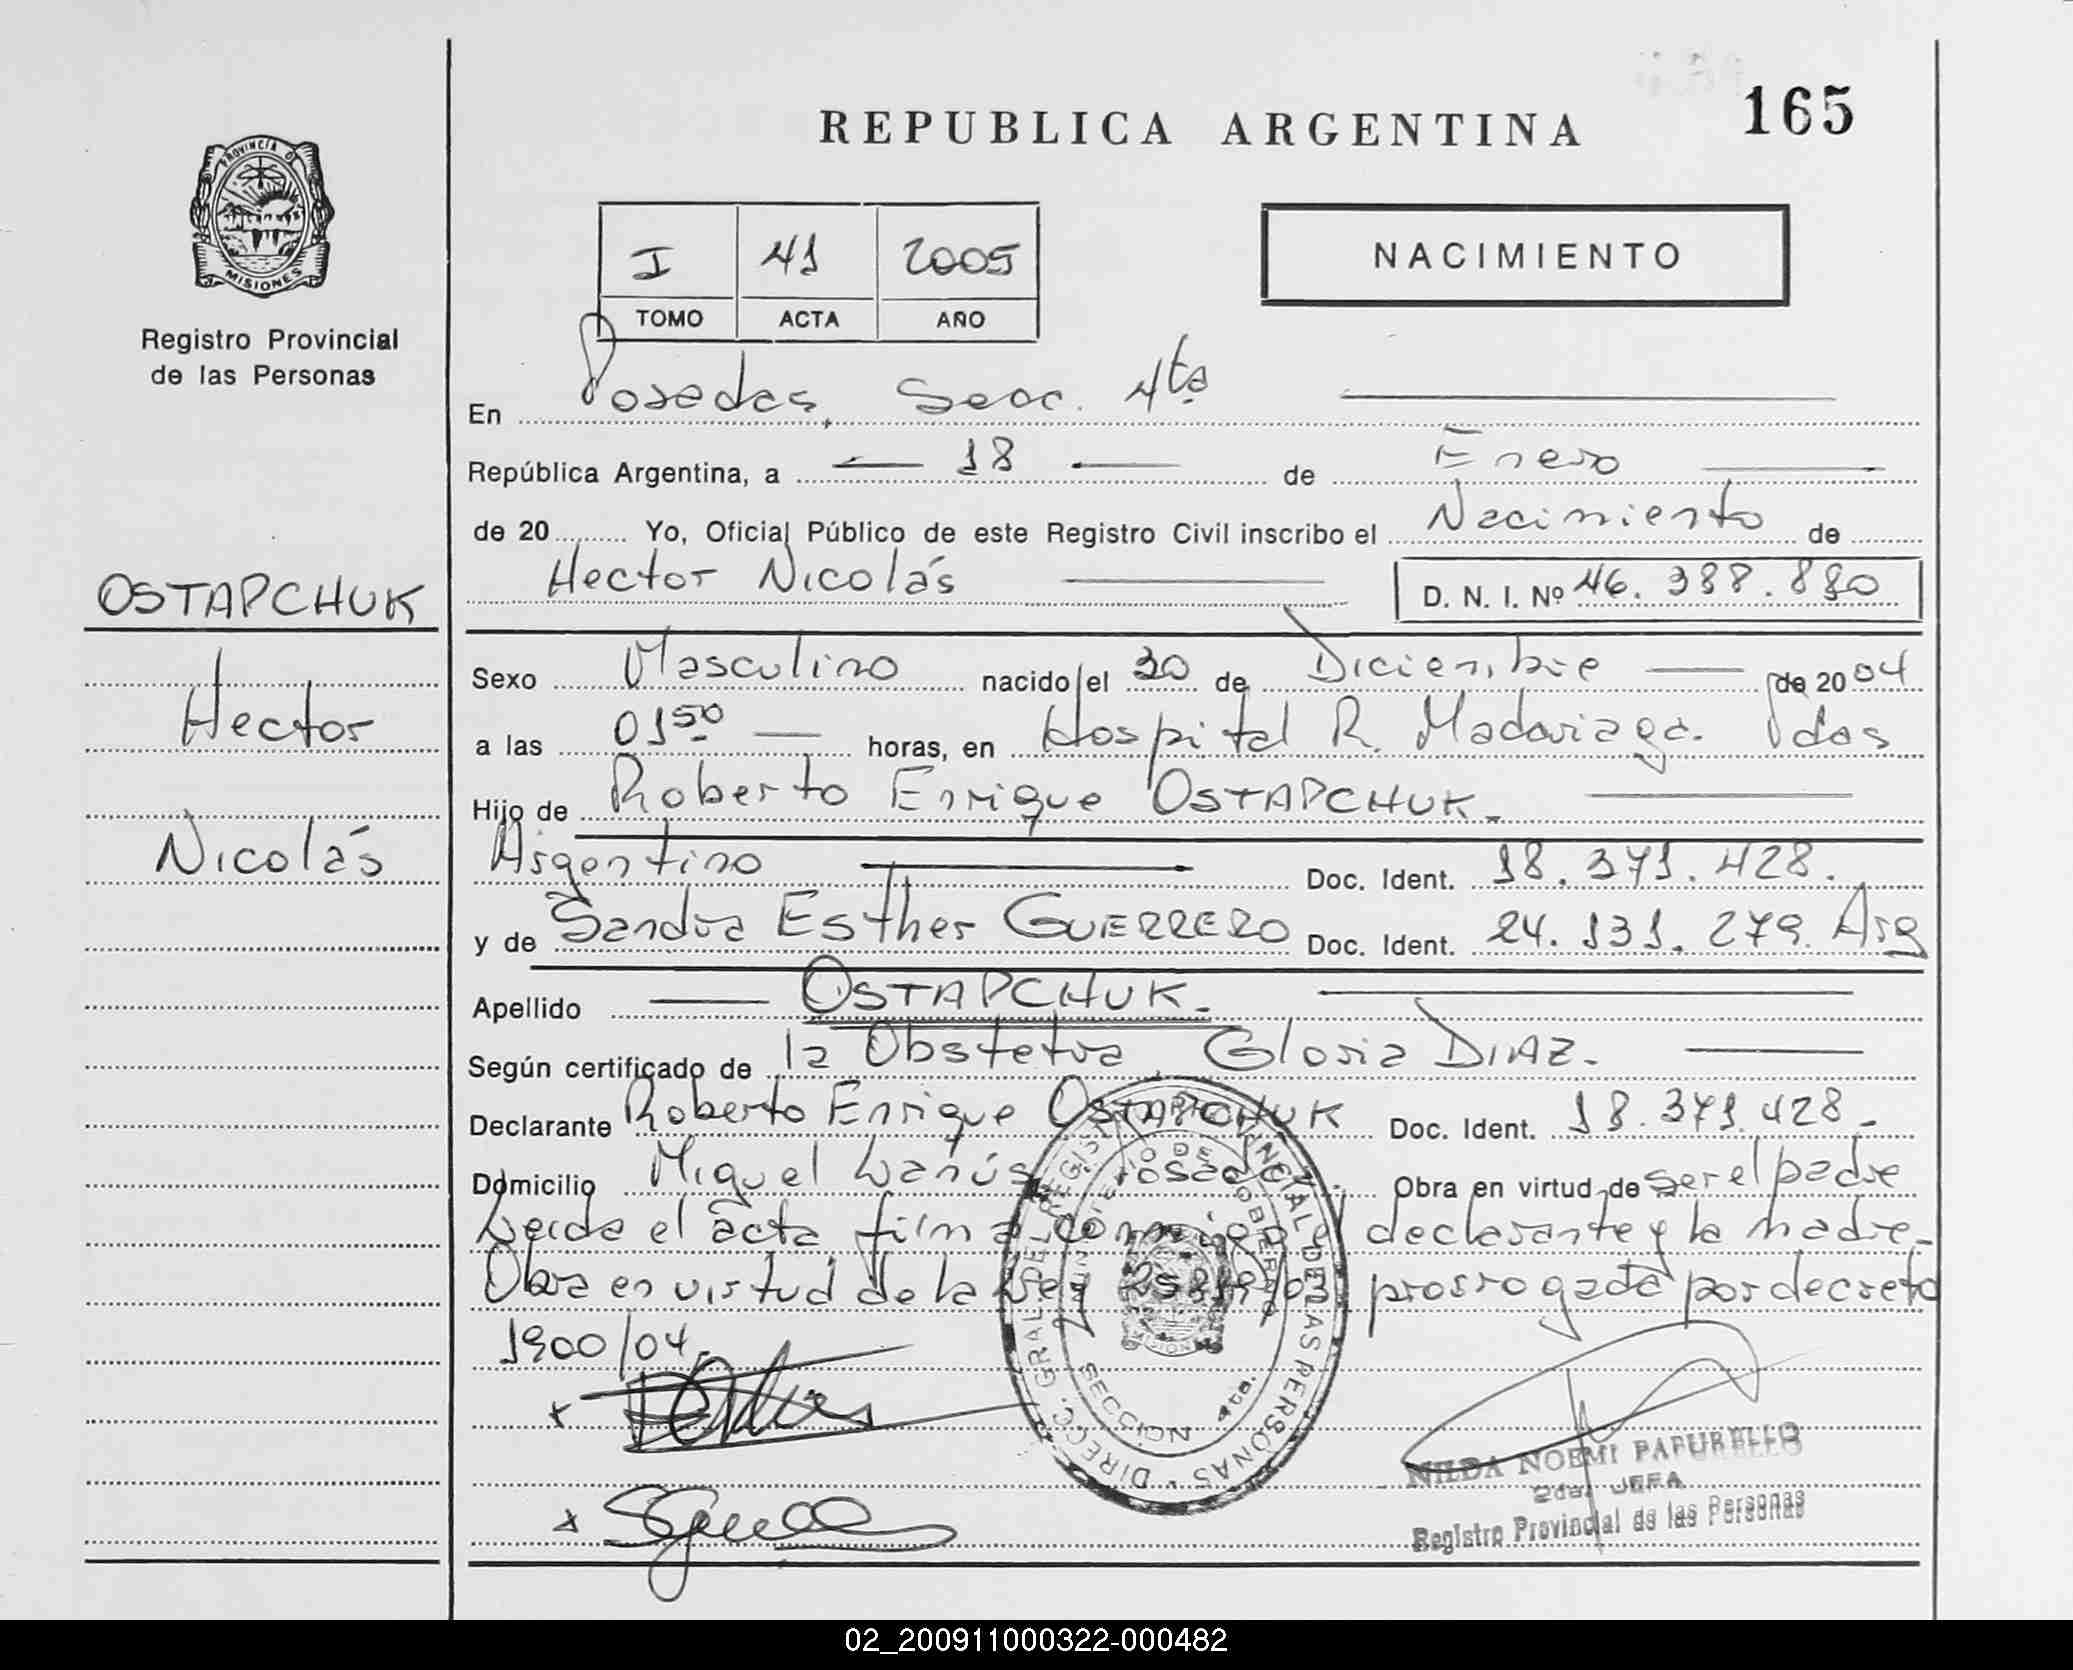 165
REPUBLICA ARGENTINA
PROVINCIA DE
MISIONES
Registro Provincial
de las Personas
I 41 2005
TOMO ACTA AÑO
NACIMIENTO
En Posadas, Secc. 4ta
República Argentina, a 18 de Enero
de 20 ........ Yo, Oficial Público de este Registro Civil inscribo el Nacimiento de
Hector Nicolás D. N. I. Nº 46.388.880
OSTAPCHUK
Hector
Nicolás
Sexo Masculino nacido el 30 de Diciembre de 2004
a las 01 50 horas, en Hospital R. Madariaga. Pdas
Hijo de Roberto Enrique OSTAPCHUK.
Argentino Doc. Ident. 18.371.428.
y de Sandra Esther GUERRERO Doc. Ident. 24.131.279. Arg
Apellido OSTAPCHUK.
Según certificado de la Obstetra Gloria DIAZ.
Declarante Roberto Enrique OSTAPCHUK Doc. Ident. 18.371.428.
Domicilio Miguel Lanús, Posadas. Obra en virtud de ser el padre
Leida el acta, firma conmigo el declarante y la madre.
Obra en virtud de la Ley prorrogada por decreto
1900/04.
DIREC. GRAL. DEL REGISTRO PROVINCIAL DE LAS PERSONAS
MINISTERIO DE GOBIERNO
MISIONES
SECCION 4ta.
NILDA NOEMI
2da. JEFA
Registro Provincial de las Personas
02_200911000322-000482